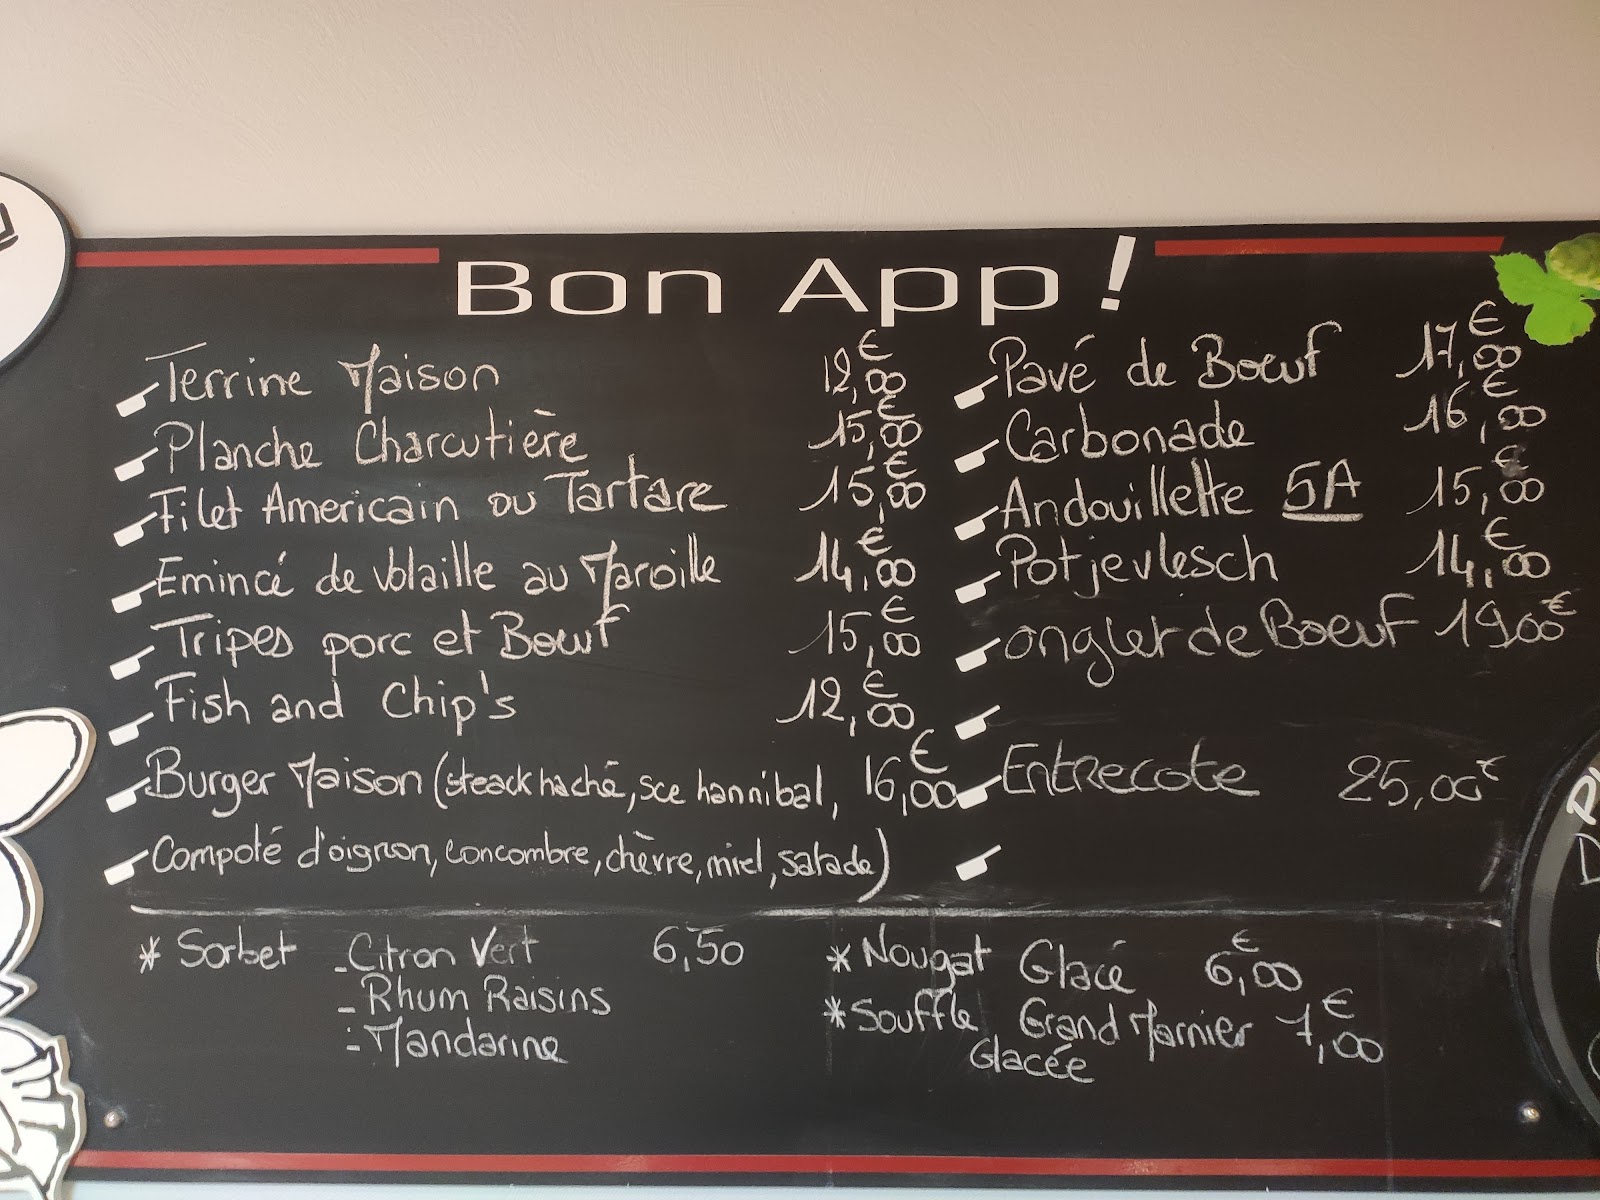 Bon App !
Terrine Maison 12,00€
Planche Charcutière 15,00€
Filet Americain ou Tartare 15,00€
Emincé de Volaille au Maroille 14,00€
Tripes porc et Bœuf 15,00€
Fish and Chip's 12,00€
Burger Maison (steack haché, sce hannibal, 16,00€
Compoté d'oignon, concombre, chèvre, miel, salade)
Pavé de Bœuf 17,00€
Carbonade 16,00€
Andouillette 5A 15,00€
Potjevlesch 14,00€
onglet de Boeuf 19,00€
Entrecote 25,00€
* Sorbet - Citron Vert 6,50
- Rhum Raisins
- Mandarine
* Nougat Glacé 6,00€
* Souffle Grand Marnier 7,00€
Glacée